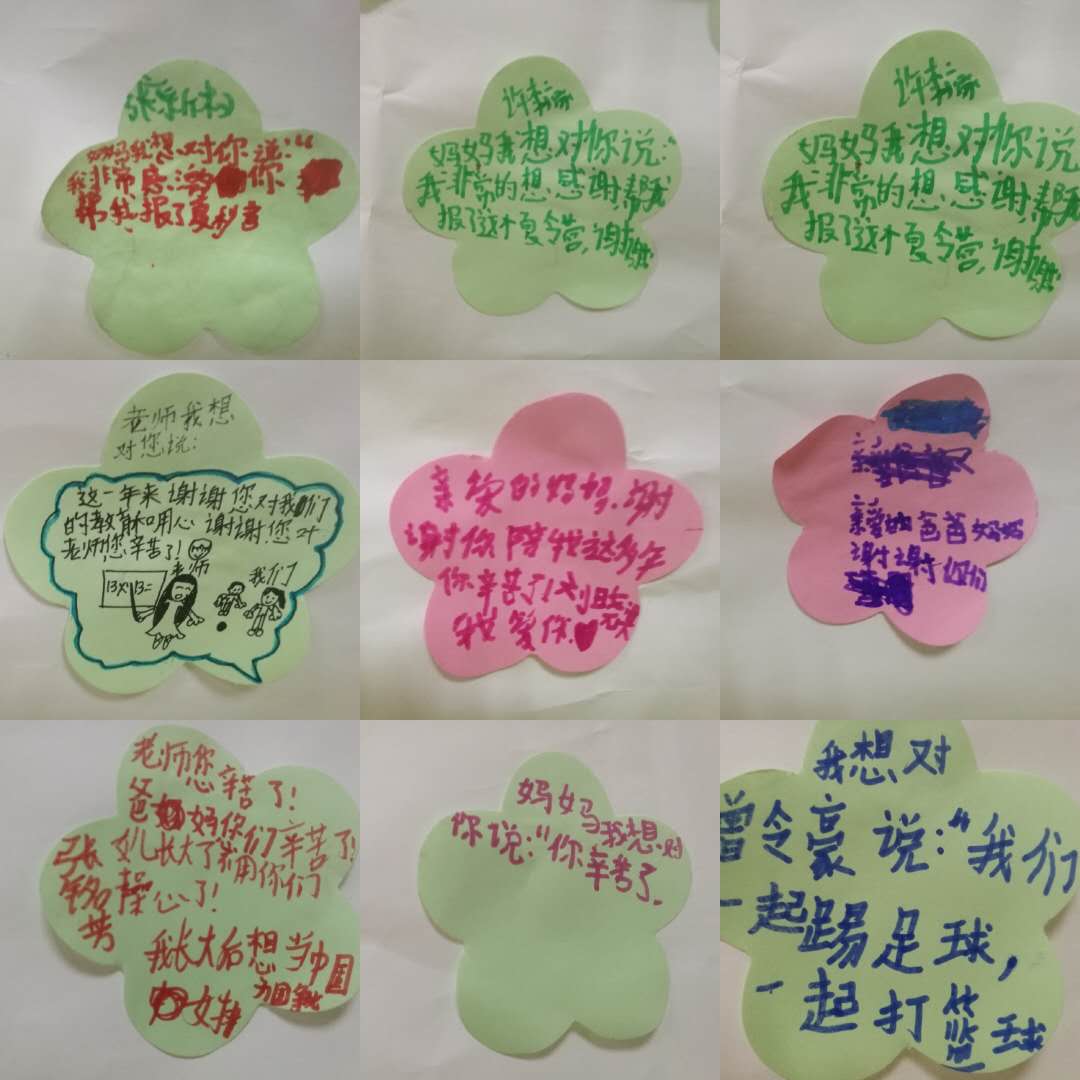 妈妈我想对你说："
我非常感谢你
帮我报了夏
许
妈妈我想对你说："
我非常的想感谢帮我
报了这个夏令营,谢谢
许
妈妈我想对你说
我非常的想感谢帮我
报了这个夏令营,谢谢
老师我想
对您说:
这一年来谢谢您对我们
的教育和用心谢谢您
老师您辛苦了!
老师
我们
13×13=
亲爱的妈妈,谢
谢你陪我这多年
你辛苦了!
我爱你.
亲爱的爸爸妈妈
谢谢你们
老师您辛苦了!
爸妈你们辛苦了!
女儿长大了 你们
操心了!
张
芳
我长大后想当中国
女排
为国争
妈妈我想对
你说:"你辛苦了.
我想对
曾令豪说:"我们
一起踢足球,
一起打篮球